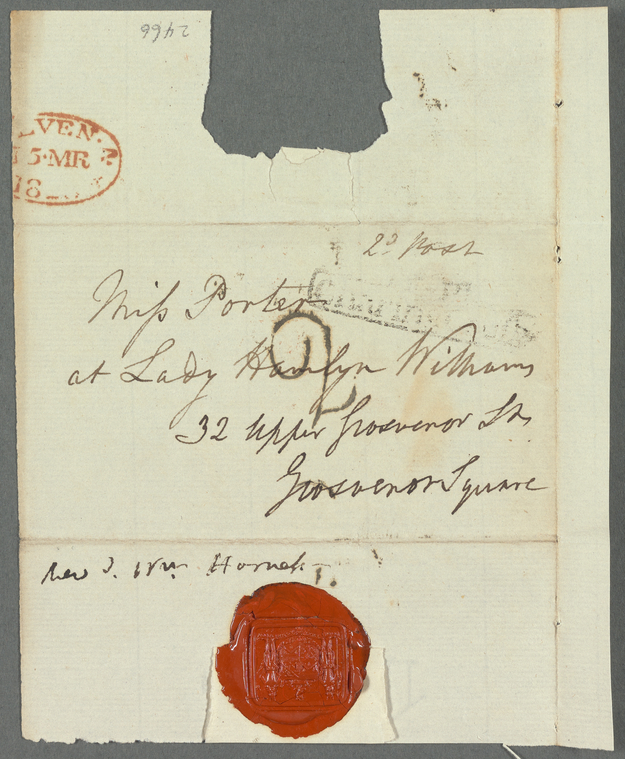 2466
EVEN
5·MR
18
2d Post
Miss Porter
at Lady Hamlyn Williams
32 Upper Grosvenor St
Grosvenor Square
2
Wm Horneck